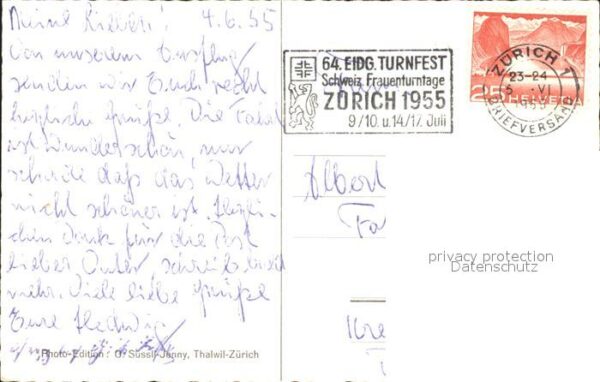 Meine Lieben! 4.6.55
Von unserem Ausflug
senden wir Euch recht
herzliche Grüße. Die Fahrt
ist wunderschön, nur
schade daß das Wetter
nicht schöner ist. Herzli-
chen Dank für die Post
lieber Onkel, schreibe bald
mehr. Viele liebe Grüße
Eure Hedwig
Photo-Edition: O. Süssli-Jenny, Thalwil-Zürich
64. EIDG. TURNFEST
Schweiz. Frauenturntage
ZÜRICH 1955
9/10. u. 14/17. Juli
ZÜRICH 1
23-24
5. VI
1955
BRIEFVERSAND
25 HELVETIA
Albert
Fa
privacy protection
Datenschutz
Kre